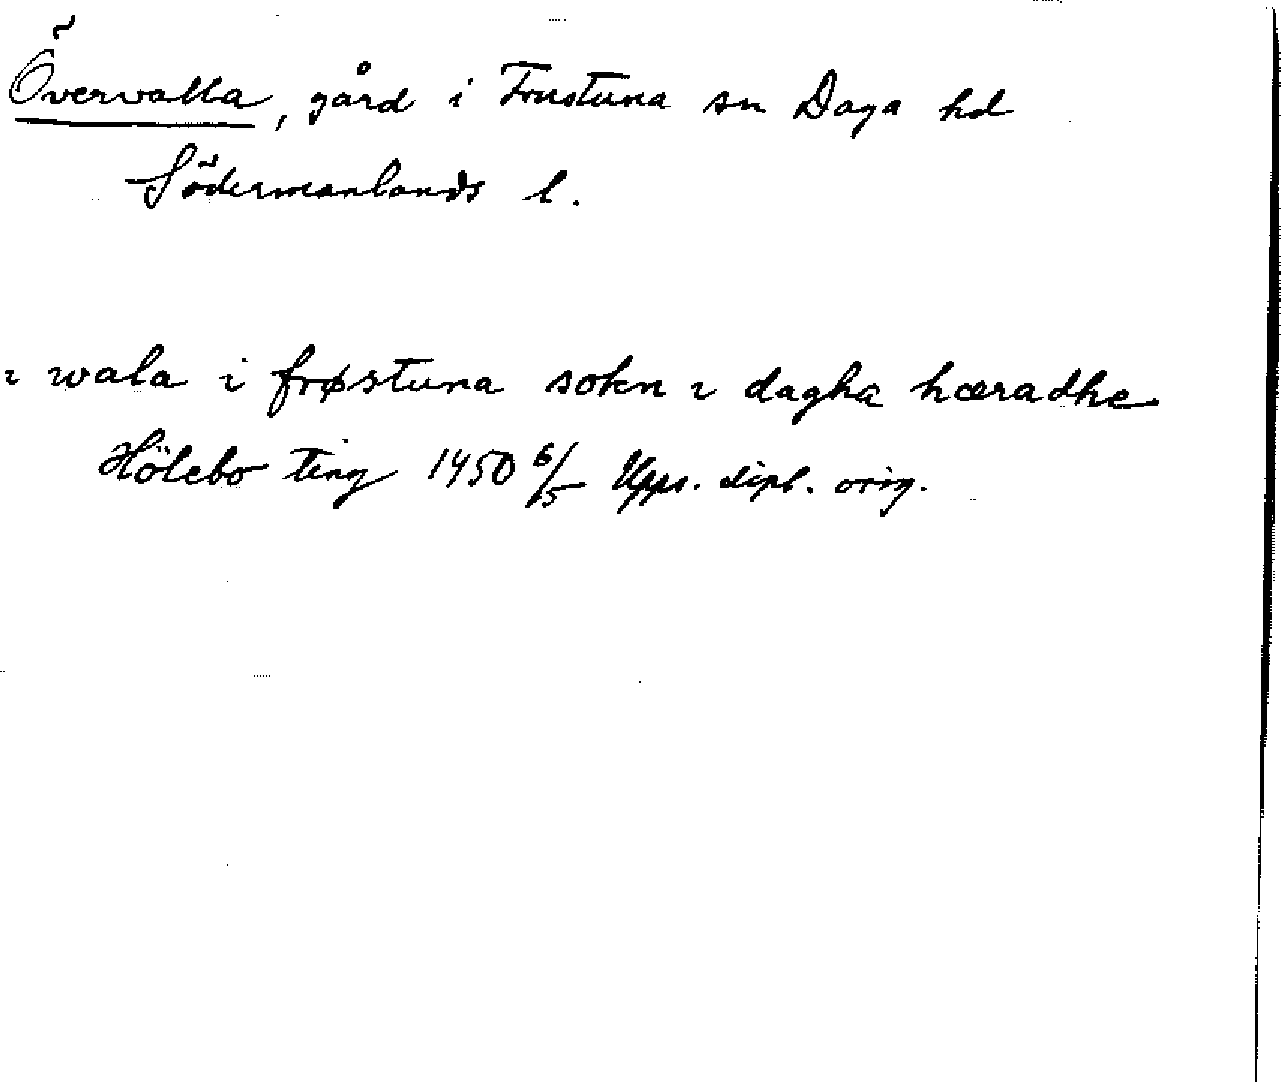 Övervalla, gård i Frustuna sn Daga hd
Södermanlands l.
i wala i frøstuna sokn i dagha hæradhe
Hölebo ting 1450 6/5 Upps. dipl. orig.